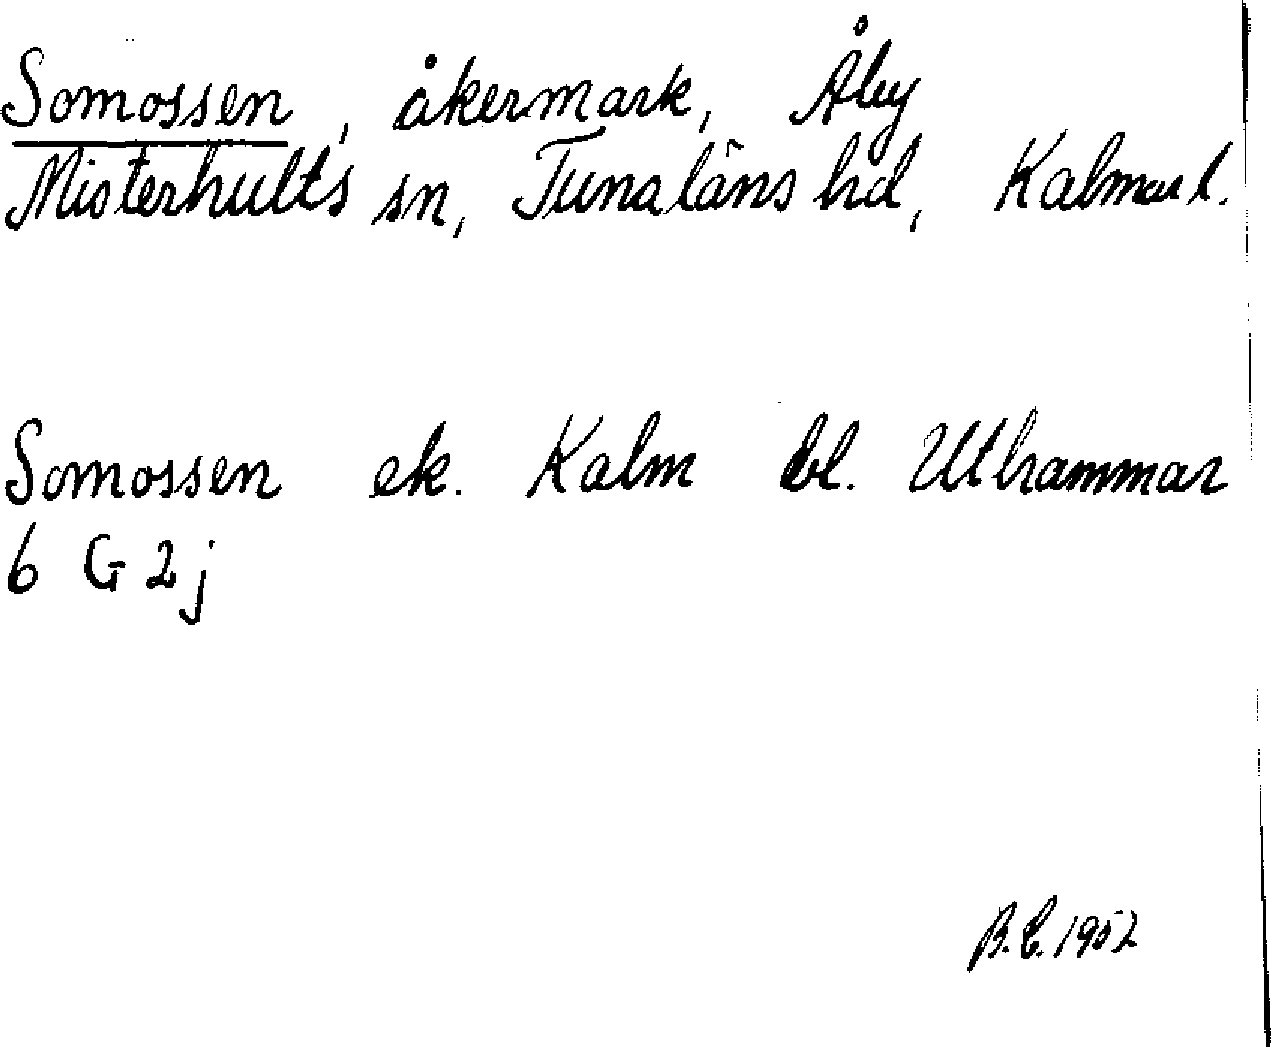 Somossen, åkermark, Åby
Misterhults sn, Tunaläns hd, Kalmar l.
Somossen ek. Kalm bl. Uthammar
6 G 2 j
B.E. 1952